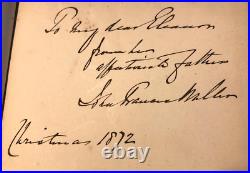 To my dear Eleanor
from her
affectionate father
John Francis Waller
Christmas 1872